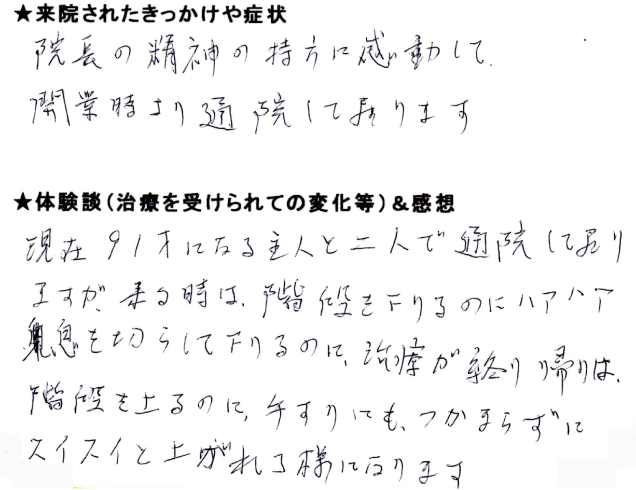 ★来院されたきっかけや症状
院長の精神の持方に感動して
開業時より通院して居ります
★体験談（治療を受けられての変化等）＆感想
現在91才になる主人と二人で通院して居り
ますが、来る時は、階段を下りるのにハアハア
息を切らして下りるのに、治療が終り帰りは、
階段を上るのに、手すりにも、つかまらずに
スイスイと上がれる様になります